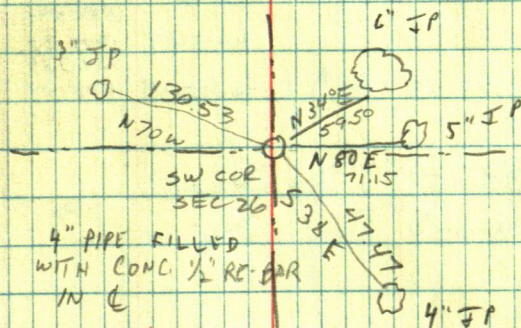 6" JP
3" JP
130.53
N70W
N34°E
59.50
5" JP
N80E
71.15
SW COR
SEC 26
S38E
47.47
4" PIPE FILLED
WITH CONC. ½" RE-BAR
IN ℄
4" JP